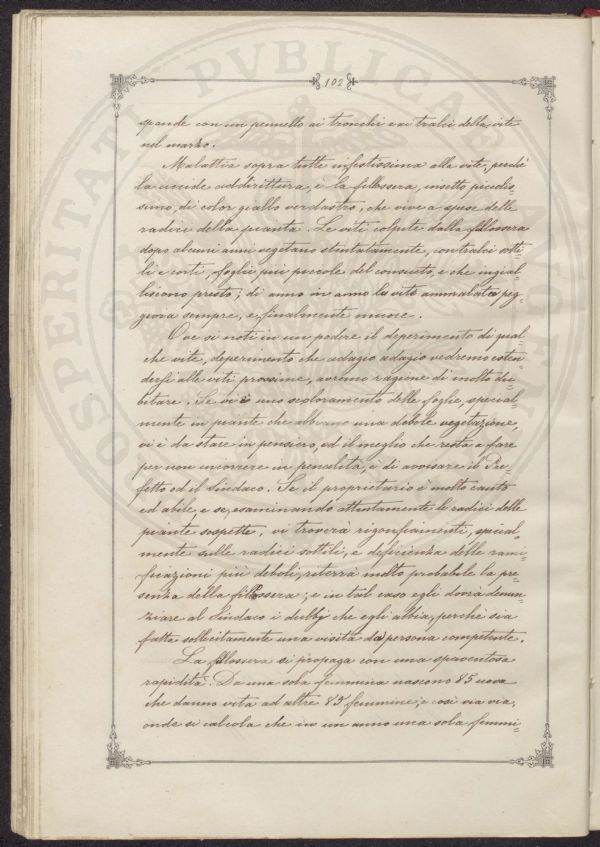 102
spande con un pennello ai tronchi e ai tralci della vite
nel marzo.
Malattia sopra tutte infestissima alla vite, perchè
la uccide addirittura, è la fillossera, insetto piccolis-
simo, di color giallo verdastro, che vive a spese delle
radici della pianta. Le viti colpite dalla fillossera
dopo alcuni anni vegetano stentatamente, con tralci sotti-
li e corti, foglie più piccole del consueto, e che ingial-
liscono presto; di anno in anno la vite ammalata peg-
giora sempre, e, finalmente muore.
Ove si noti in un podere il deperimento di qual-
che vite, deperimento che adagio adagio vedremo esten-
dersi alle viti prossime, avremo ragione di molto du-
bitare. Se vi è uno scoloramento delle foglie, special-
mente in piante che abbiano una debole vegetazione,
vi è da stare in pensiero, ed il meglio che resta a fare
per non incorrere in penalità, è di avvisare il Pre-
fetto od il Sindaco. Se il proprietario è molto cauto
ed abile, e se, esaminando attentamente le radici delle
piante sospette, vi troverà rigonfiamenti, special-
mente sulle radici sottili, e deficienza delle rami-
ficazioni più deboli, riterrà molto probabile la pre-
senza della fillossera; e in tal caso egli dovrà denun-
ziare al Sindaco i dubbj che egli abbia, perchè sia
fatta sollecitamente una visita da persona competente.
La fillossera si propaga con una spaventosa
rapidità. Da una sola femmina nascono 85 uova
che danno vita ad altre 85 femmine, e così via via,
onde si calcola che in un anno una sola femmi-
PVBLICAE